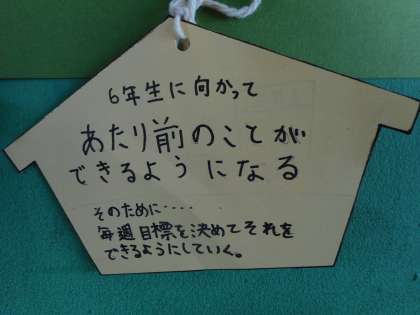 6年生に向かって
あたり前のことが
できるようになる
そのために‥‥
毎週目標を決めてそれを
できるようにしていく。